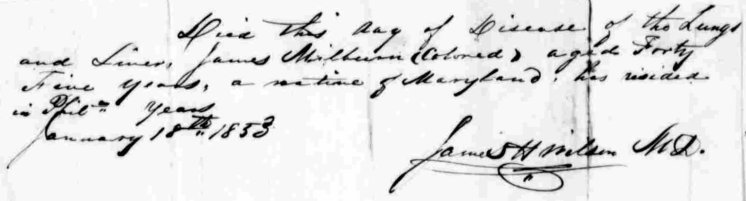 Died this day of Disease of the Lungs
and Liver, James Milburn (Colored) aged Forty
Five years, a native of Maryland, has resided
in Phila years
January 18th 1853
James H Wilson M.D.